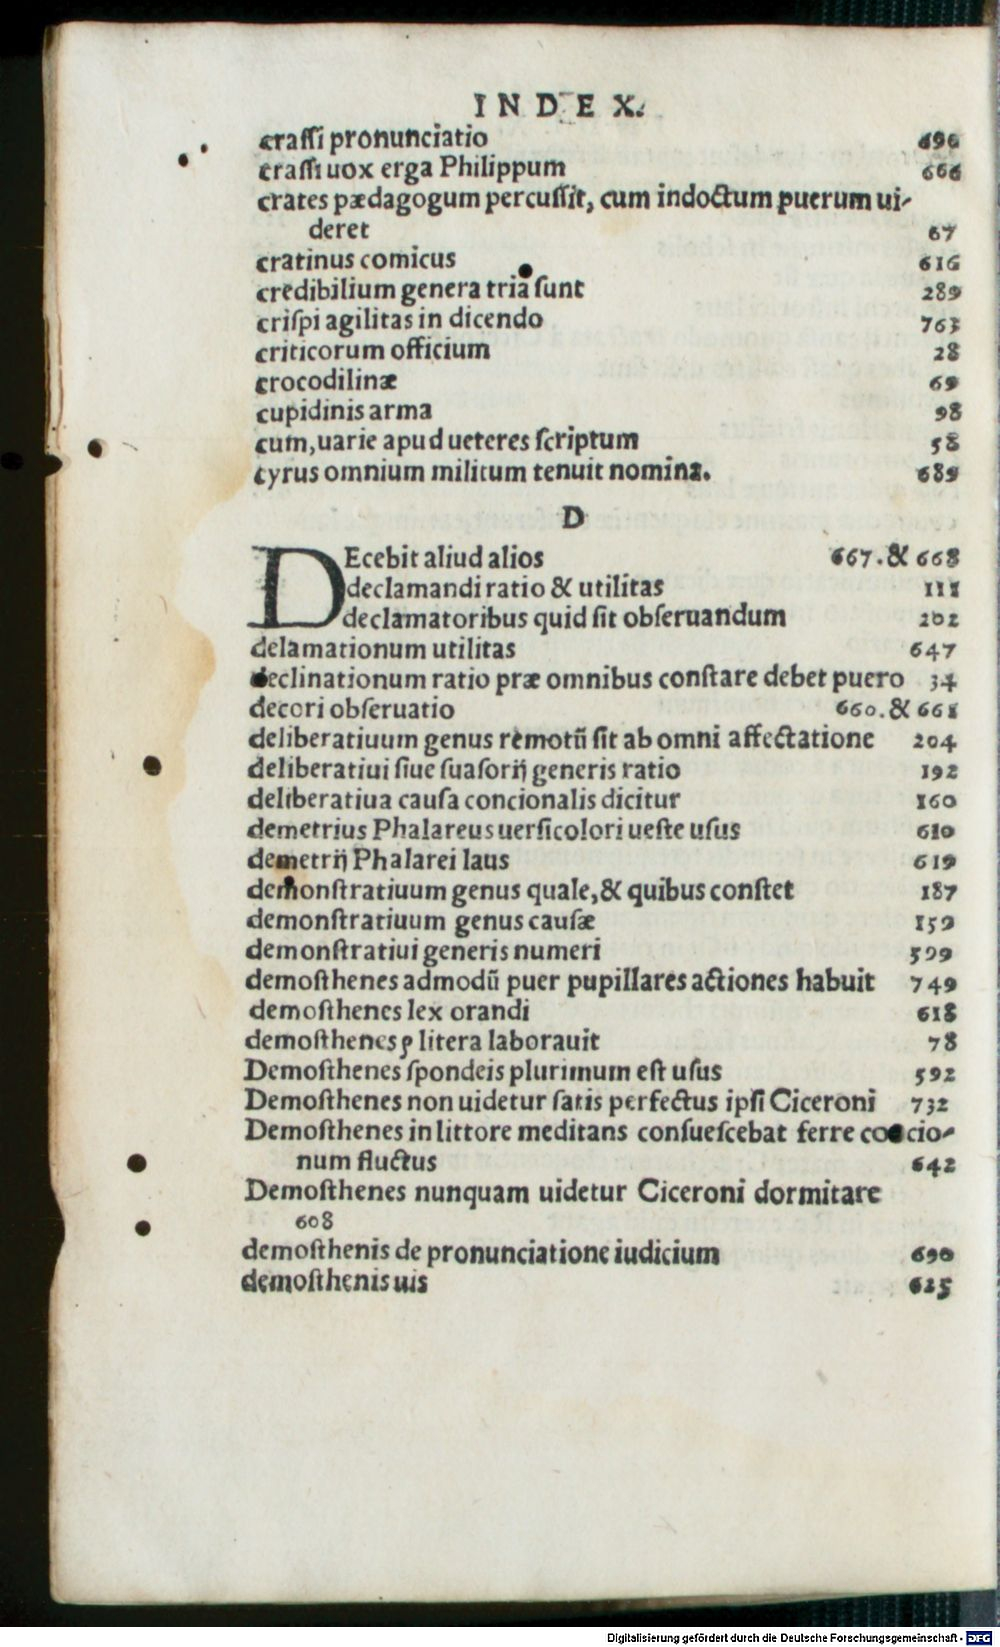 INDEX.
craſſi pronunciatio 690
craſſi uox erga Philippum 666
crates pædagogum percuſſit, cum indoctum puerum ui-
deret 67
cratinus comicus 616
credibilium genera tria ſunt 289
criſpi agilitas in dicendo 763
criticorum officium 28
crocodilinæ 69
cupidinis arma 98
cum, uarie apud ueteres ſcriptum 58
cyrus omnium militum tenuit nomina. 689
D
DEcebit aliud alios 667. & 668
declamandi ratio & utilitas 111
declamatoribus quid ſit obſeruandum 202
delamationum utilitas 647
declinationum ratio præ omnibus conſtare debet puero 34
decori obſeruatio 660. & 661
deliberatiuum genus remotũ ſit ab omni affectatione 204
deliberatiui ſiue ſuaſorĳ generis ratio 192
deliberatiua cauſa concionalis dicitur 160
demetrius Phalareus uerſicolori ueſte uſus 610
demetrĳ Phalarei laus 619
demonſtratiuum genus quale, & quibus conſtet 187
demonſtratiuum genus cauſæ 159
demonſtratiui generis numeri 599
demoſthenes admodũ puer pupillares actiones habuit 749
demoſthenes lex orandi 618
demoſthenes ρ litera laborauit 78
Demoſthenes ſpondeis plurimum eſt uſus 592
Demoſthenes non uidetur ſatis perfectus ipſi Ciceroni 732
Demoſthenes in littore meditans conſueſcebat ferre concio-
num fluctus 642
Demoſthenes nunquam uidetur Ciceroni dormitare
608
demoſthenis de pronunciatione iudicium 690
demoſthenis uis 625
Digitalisierung gefördert durch die Deutsche Forschungsgemeinschaft - DFG